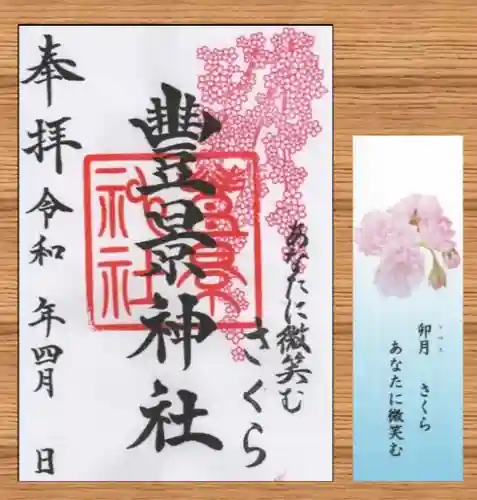 奉拝
令和 年四月 日
豐景神社
豐景神社
さくら
あなたに微笑む
卯月 さくら
あなたに微笑む